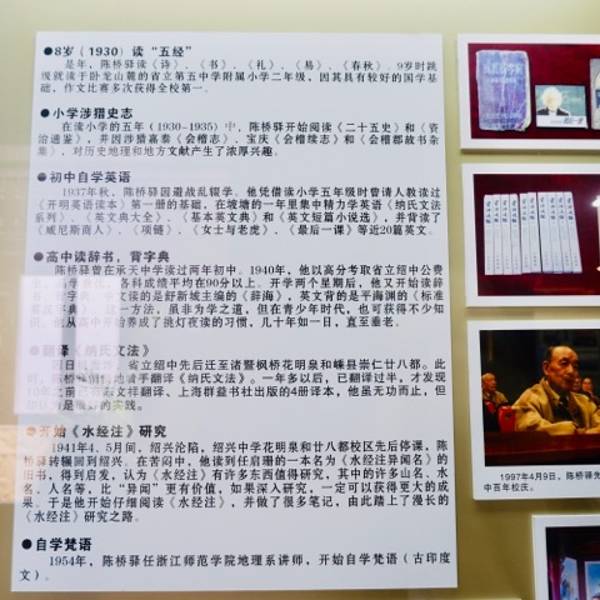 ●8岁（1930）读“五经”
是年，陈桥驿读《诗》、《书》、《礼》、《易》、《春秋》。9岁时跳
级就读于卧龙山麓的省立第五中学附属小学二年级，因其具有较好的国学基
础，作文比赛多次获得全校第一。
●小学涉猎史志
在读小学的五年（1930-1935）中，陈桥驿开始阅读《二十五史》和《资
治通鉴》，并因涉猎嘉泰《会稽志》、宝庆《会稽续志》和《会稽郡故书杂
集》，对历史地理和地方文献产生了浓厚兴趣。
●初中自学英语
1937年秋，陈桥驿因避战乱辍学。他凭借读小学五年级时曾请人教读过
《开明英语读本》第一册的基础，在坡塘的一年里集中精力学英语《纳氏文法
系列》、《英文典大全》、《基本英文典》和《英文短篇小说选》，并背读了
《威尼斯商人》、《项链》、《女士与老虎》、《最后一课》等近20篇英文。
●高中读辞书，背字典
陈桥驿曾在承天中学读过两年初中。1940年，他以高分考取省立绍中公费
各科成绩平均在90分以上。开学两个星期后，他又开始读辞
中文读的是舒新城主编的《辞海》，英文背的是平海澜的《标准
这一方法，虽非为学之道，但在青少年时代，也可获得不少知
识。他从高中开始养成了挑灯夜读的习惯，几十年如一日，直至垂老。
●翻译《纳氏文法》
省立绍中先后迁至诸暨枫桥花明泉和嵊县崇仁廿八都。此
时，陈桥驿悄悄地着手翻译《纳氏文法》。一年多以后，已翻译过半，才发现
文祥翻译、上海群益书社出版的4册译本，他虽无功而止，但
是最好的实践。
●开始《水经注》研究
1941年4、5月间，绍兴沦陷，绍兴中学花明泉和廿八都校区先后停课，陈
桥驿转辗回到绍兴。在苦闷中，他读到任启珊的一本名为《水经注异闻名》的
旧书，得到启发，认为《水经注》有许多东西值得研究，其中的许多山名、水
名、人名等，比“异闻”更有价值，如果深入研究，一定可以获得更大的成
果。于是他开始仔细阅读《水经注》，并做了很多笔记，由此踏上了漫长的
《水经注》研究之路。
●自学梵语
1954年，陈桥驿任浙江师范学院地理系讲师，开始自学梵语（古印度
文）。
1997年4月9日，陈桥驿先
中百年校庆。